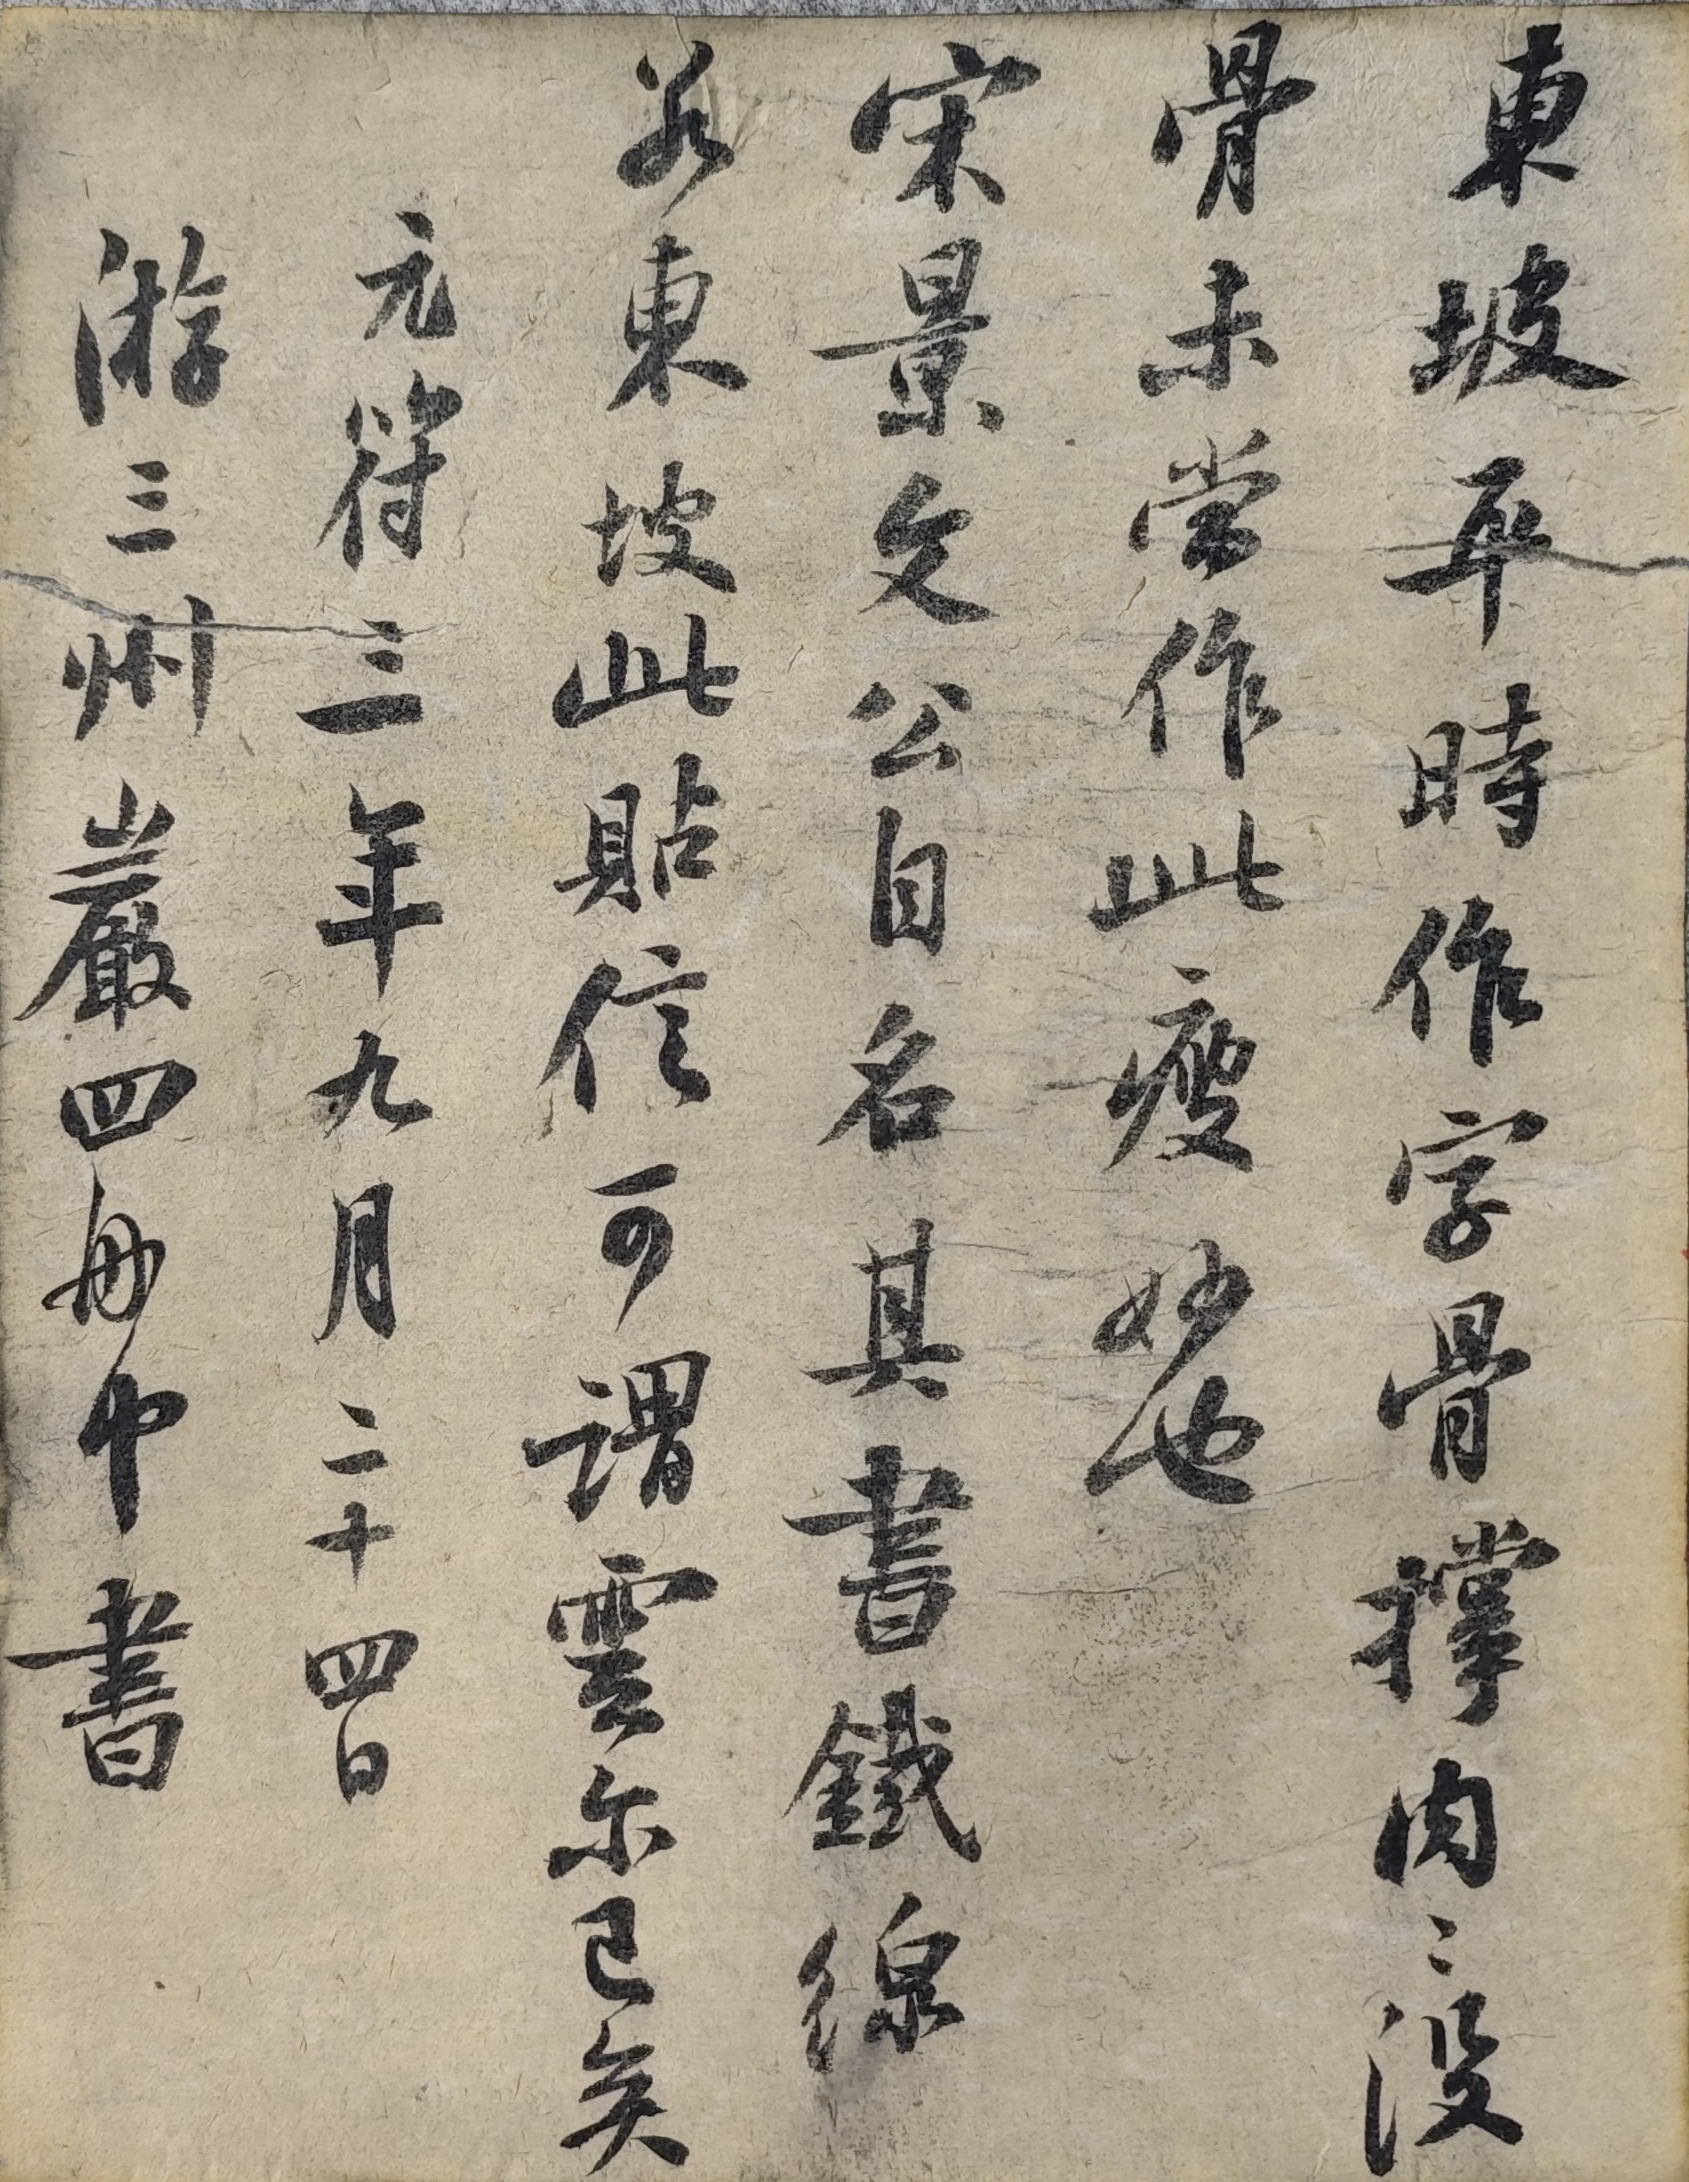 東坡平時作字骨撑肉〻没
骨未尝作此瘦妙也
宋景文公自名其書鐵線
若東坡此貼信可謂雲尔已矣
元符三年九月二十四日
游三州巖四舟中書